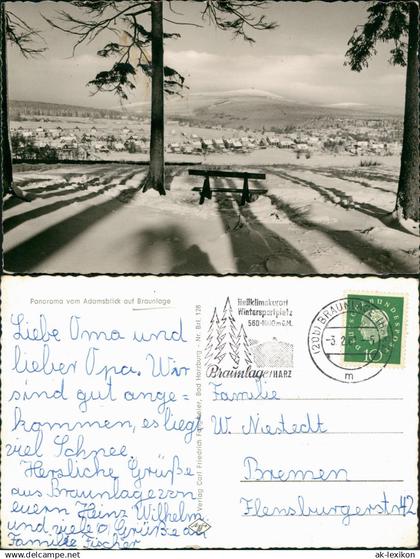 Panorama vom Adamsblick auf Braunlage
Liebe Oma und
lieber Opa. Wir
sind gut ange-
kommen, es liegt
viel Schnee.
Herzliche Grüße
aus Braunlage von
euern Heinz Wilhelm
und viele Grüße an
Familie Fischer
Verlag Carl Friedrich Bad Harzburg - Nr. Brl. 128
Heilklimakurort
Wintersportplatz
560-1000 m ü.M.
Braunlage/HARZ
(20b) BRAUNLAGE
-3.2.
m
DEUTSCHE BUNDESPOST
10
Familie
W. Niestedt
Bremen
Flensburgerstr. 42
ak-lexikon.de